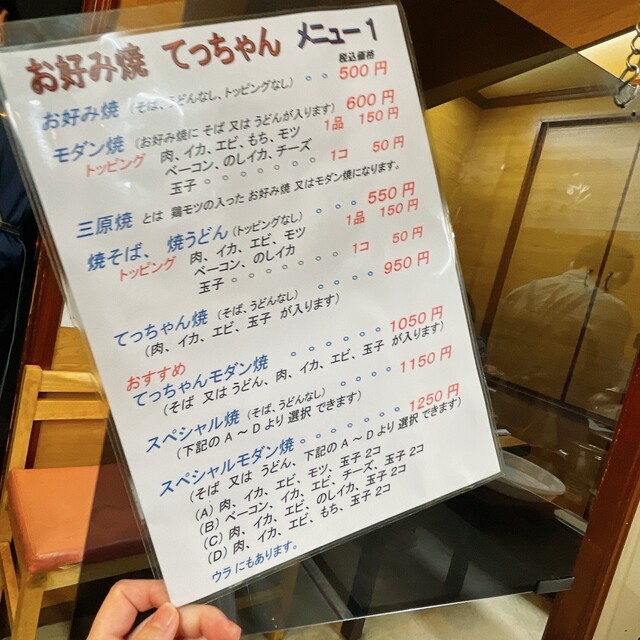 お好み焼 てっちゃん メニュー1
税込価格
お好み焼 (そば、うどんなし、トッピングなし) 。。 500円
モダン焼 (お好み焼に そば 又は うどんが入ります) 600円
トッピング 肉、イカ、エビ、もち、モツ 1品 150円
ベーコン、のしイカ、チーズ
玉子 。。。。。。。 1コ 50円
三原焼 とは 鶏モツの入った お好み焼 又はモダン焼になります。
焼そば、焼うどん (トッピングなし) 。。。 550円
トッピング 肉、イカ、エビ、モツ 1品 150円
ベーコン、のしイカ
玉子 。。。。。。。 1コ 50円
てっちゃん焼 (そば、うどんなし) 。。。。 950円
(肉、イカ、エビ、玉子 が入ります)
おすすめ
てっちゃんモダン焼 。。。。。。 1050円
(そば 又は うどん、肉、イカ、エビ、玉子 が入ります)
スペシャル焼 (そば、うどんなし) 。。。。 1150円
(下記の A ～ D より 選択 できます)
スペシャルモダン焼 。。。。。。。 1250円
(そば 又は うどん、下記の A ～ D より 選択 できます)
(A) 肉、イカ、エビ、モツ、玉子 2コ
(B) ベーコン、イカ、エビ、チーズ、玉子 2コ
(C) 肉、イカ、エビ、のしイカ、玉子 2コ
(D) 肉、イカ、エビ、もち、玉子 2コ
ウラ にもあります。